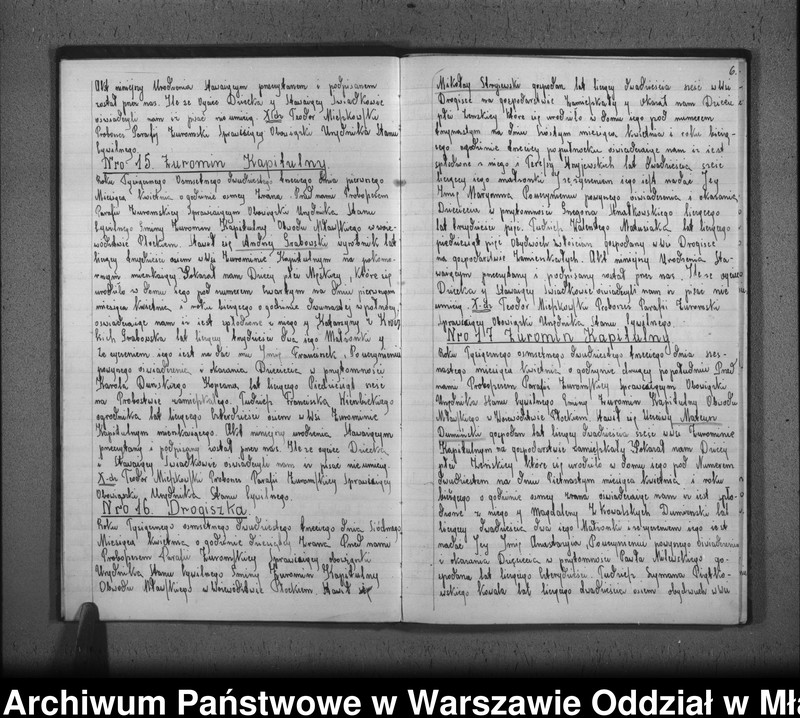 Akt niniejszy Urodzenia Stawającym przeczytanem i podpisanem
został przez nas. Ile że Oyciec Dziecka y Stawaiący Swiadkowie
oświadczyli nam iż pisać nie umieją. X-dz Teodor Miepkowski
Proboszcz Parafij Żuromski Sprawuiący Obowiązki Urzędnika Stanu
Cywilnego.
Nro 15. Żuromin Kapitulny.
Roku Tysiącznego Osmsetnego dwudziestego trzeciego dnia pierwszego
Miesiąca Kwietnia o godzinie osmey zrana. Przed nami Proboszczem
Parafii Żuromskiey Sprawuiącym Obowiązki Urzędnika Stanu
Cywilnego Gminy Żuromin Kapitulny Obwodu Mławskiego w Woie-
wodztwie Płockiem. Stawił się Andrzej Grabowski wyrobnik lat
liczący trzydzieści osiem w Wsi Żurominie Kapitulnym na pokomo-
rnym mieszkaiący y okazał nam Dziecię płci Męzkiey, które się
urodziło w domu iego pod numerem czwartym na dniu pierwszym
miesiąca Kwietnia i roku bieżącego o godzinie dwunastej w południe,
oświadczaiąc nam iż iest spłodzone z niego y Katarzyny z
Grabowska lat liczący trzydzieści dwa iego Małżonki y
że życzeniem iego iest nadać mu Jmię Franciszek. Po uczynieniu
powyżego oświadczenia i okazania Dziecięcia w przytomności
Karola Dunskiego Kopczarza, lat liczącego Piedziesiąt sześć
na Probostwie zamieszkałego. Tudzież Franciszka
ogrodnika lat liczącego czterdzieści osiem w Wsi Żurominie
Kapitulnym mieszkaiącego. Akt niniejszy urodzenia Stawaiącym
przeczytany i podpisany został przez nas. Ile że oyciec Dziecka
i Stawaiący Swiadkowie oświadczyli nam iż pisać nie umieją.
X-dz Teodor Miepkowski Proboszcz Parafij Żuromskiey Sprawuiący
Obowiązki Urzędnika Stanu Cywilnego.
Nro 16. Drogiszka
Roku Tysiącznego osmsetnego dwudziestego trzeciego dnia siódmego
Miesiąca Kwietnia o godzinie dziesiątey zrana Przed nami
Proboszczem Parafii Żuromskiey Sprawuiący obowiązki
Urzędnika Stanu Cywilnego Gminy Żuromin Kapitulny
Obwodu Mławskiego w Woiewództwie Płockiem Stawił się
6.
Mikołay gospodarz lat liczący dwadzieścia sześć w Wsi
Drogisce na gospodarstwie Zamieszkały y Okazał nam Dziecię
płci Żenskiey które się urodziło w domu iego pod numerem
na dniu szóstym miesiąca Kwietnia i roku bieżą-
cego o godzinie trzeciey popołudniu oświadczaiąc nam iż iest
spłodzone z niego y lat dwadzieścia sześć
liczącey iego małżonki y że życzeniem iego iest nadać Jey
Jmię Maryanna Po uczynieniu powyżego oświadczenia i okazania
Dziecięcia w przytomności liczącego
lat trzydzieści pięć. Tudzież Walentego Matusiaka lat liczącego
pięć Obydwóch gospodarzy w Wsi Drogisce
na gospodarstwie Zamieszkałych. Akt niniejszy Urodzenia Sta-
waiącym przeczytany i podpisany został przez nas. Ile że oyciec
Dziecka y Stawaiący Swiadkowie oświadczyli nam iż pisać nie
umieją. X-dz Teodor Miepkowski Proboszcz Parafii Żuromski
Sprawuiący Obowiązki Urzędnika Stanu Cywilnego.
Nro 17 Żuromin Kapitulny
Roku Tysiącznego osmsetnego dwudziestego trzeciego dnia szes-
nastego miesiąca Kwietnia o godzinie drugiey popołudniu Przed
nami Proboszczem Parafii Żuromskiey sprawuiącym Obowiązki
Urzędnika Stanu Cywilnego Gminy Żuromin Kapitulny Obwodu
Mławskiego w Woiewództwie Płockiem Stawił się Uczciwy Mateusz
Dumiński gospodarz lat liczący dwadzieścia sześć w Wsi Żurominie
Kapitulnym na gospodarstwie zamieszkały y okazał nam Dziecię
płci Żenskiey które się urodziło w domu iego pod Numerem
dwudziestem na dniu Piętnastym miesiąca Kwietnia i roku
bieżącego o godzinie osmey zrana oświadczaiąc nam iż iest spło-
dzone z niego y Magdaleny z Kowalskich Dumienski lat
liczący dwadzieścia dwa iego Małżonki i że życzeniem iego iest
nadać Jey Jmię Anastazyia, Po uczynieniu powyżego Oświadczenia
i okazania Dziecięcia w przytomności Pawła Milewskiego go-
spodarza lat liczącego czterdzieści Tudzież Szymona Piątko-
wskiego Kowala lat liczącego dwadzieścia osiem obydwóch w Wsi
Archiwum Państwowe w Warszawie Oddział w Mła